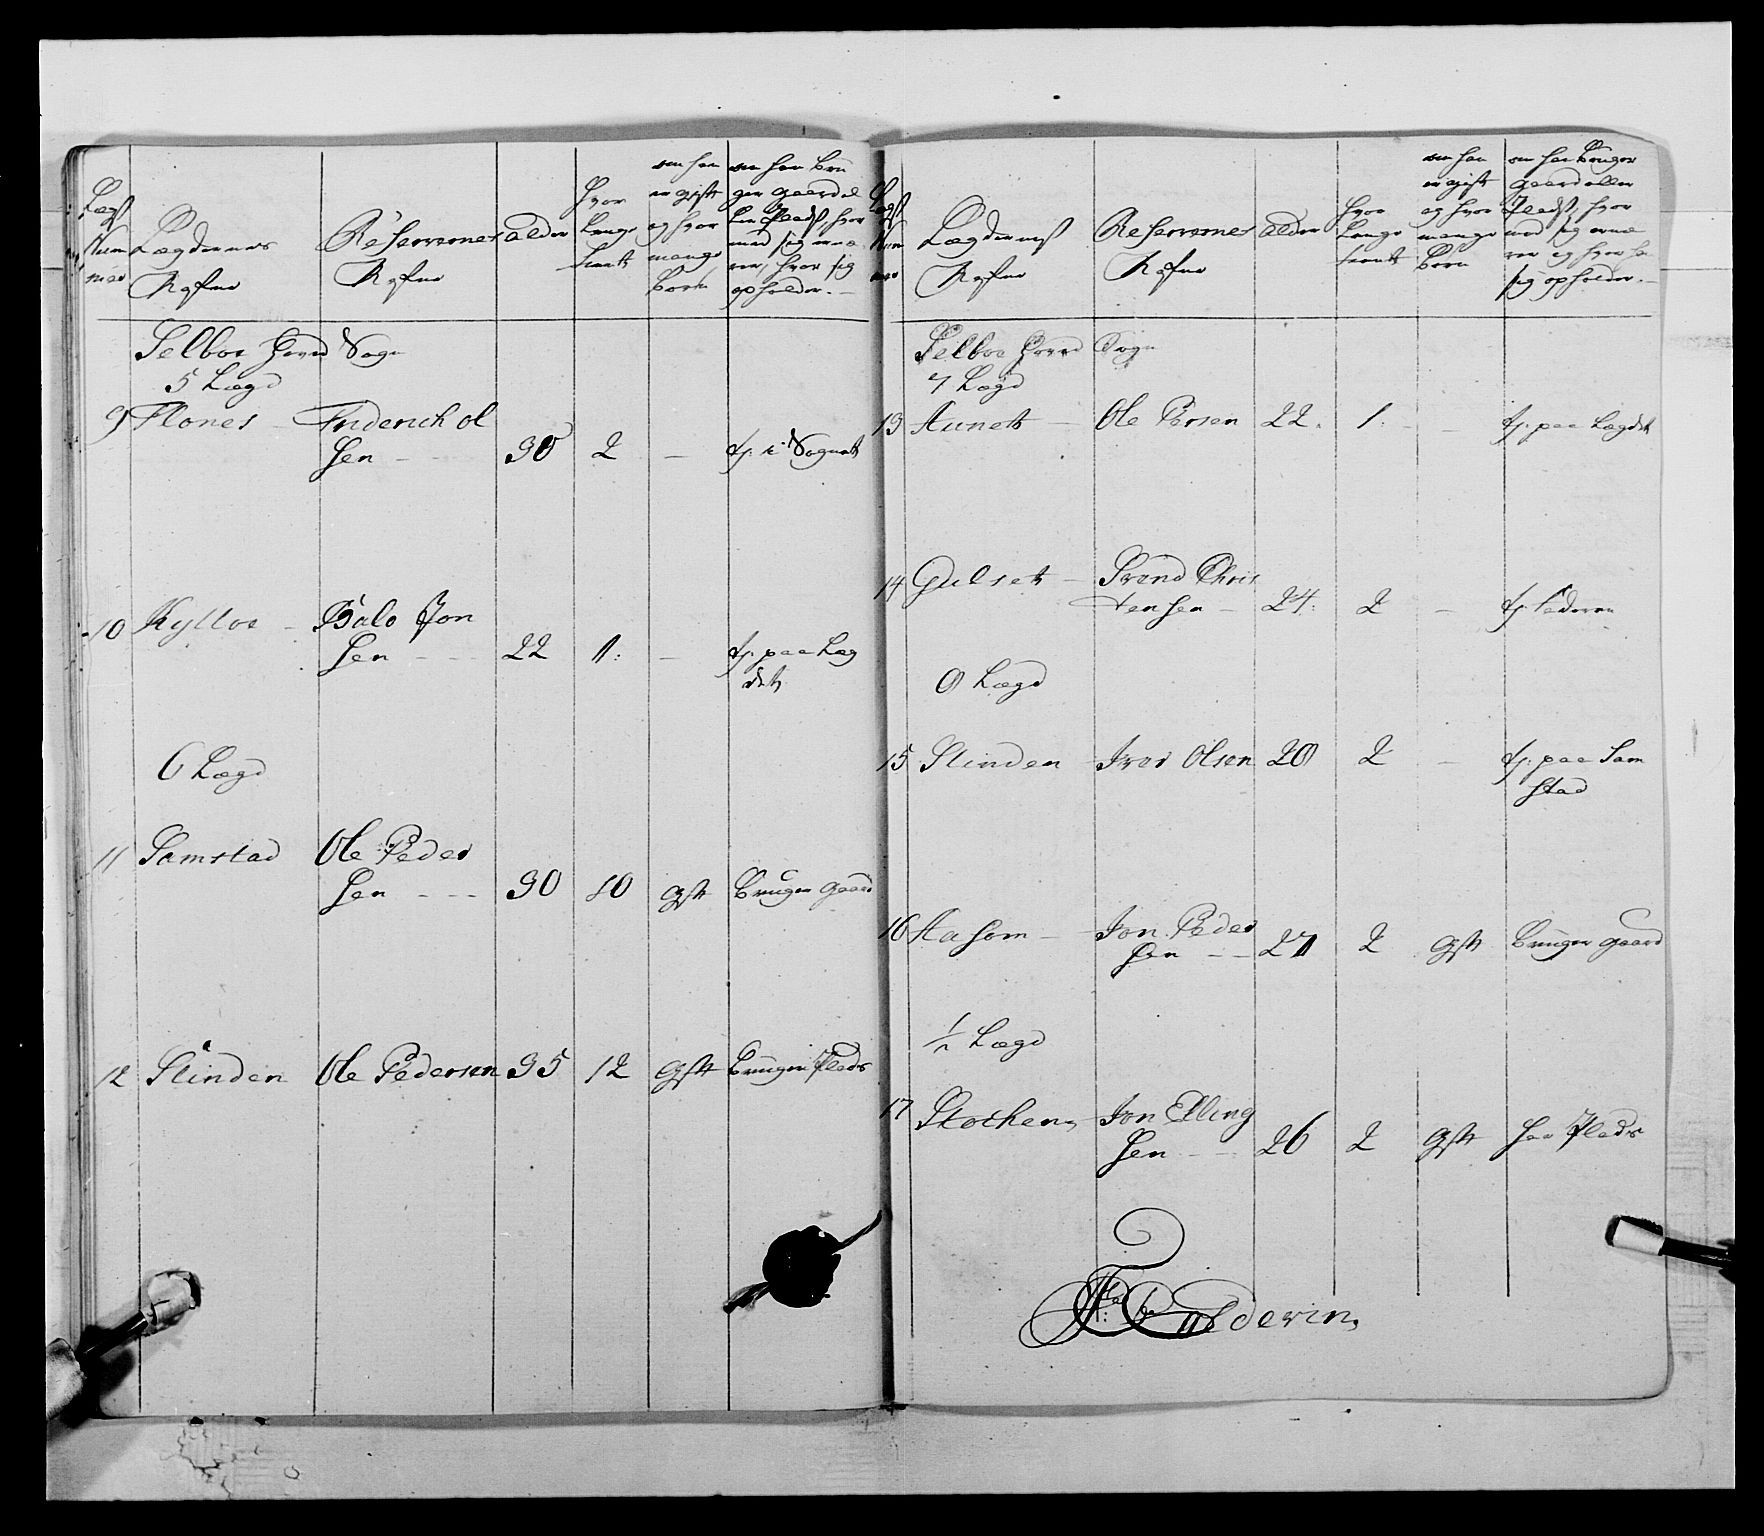 Lægs
Num
mer
Lægdernes
Nafne
Reservernes
Nafne
alder
hvor
lenge
tient
om han
er gift
og hvor
mange
börn
om han bru
ger gaard el
ler Pladß, hvor
med sig ernæ
rer, hvor sig
opholder.
Selboe Hovd Sogn
5 Lægd
9 Flones Friderich Ol
sen 30 2 - tj: i Sognet
10 Kylloe Balo Jon
sen 22 1: - tj: paa Læg
det
6 Lægd
11 Samstad Ole Peder
sen 30 10 gift Bruger gaard
12 Slinden Ole Pedersen 35 12 gift Bruger Plads
Lægs
Num
mer
Lægderneß
Nafne
Reservernes
Nafne
alder
hvor
lenge
tient
om han
er gift
og hvor
mange
börn
om han bruger
gaard eller
Pladß, hvor
med sig ernæ
rer og hvor ha
sig opholder.
Selboe Hovd Sogn
7 Lægd
13 Aunet Ole Persen 22. 1. - tj: paa Lægdet
14 Gulset Svend Chris
tensen 24: 2 - tj: Faderen
8 Lægd
15 Slinden Iver Olsen 20 2 - tj: paa Sam
stad
16 Aasom Jon Peder
sen 27 2 gift Bruger gaard
1/2 Lægd
17 Stochen Jon Elling
sen 26 2 gift har Plads